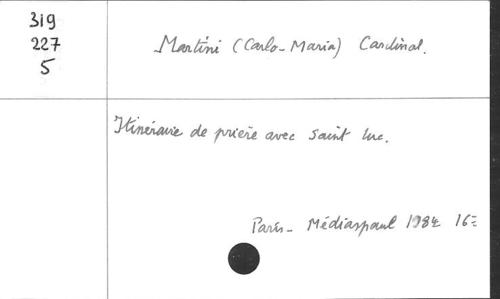 319
227
5
Martini (Carlo-Maria) Cardinal.
Itinéraire de prière avec saint Luc.
Paris - Médiaspaul 1984 16=